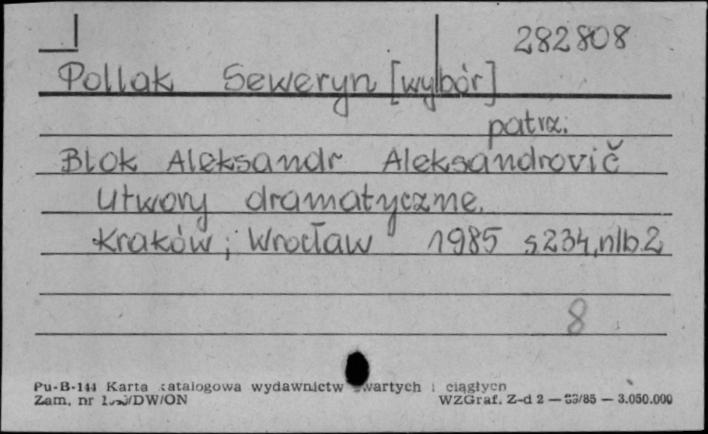 282808
Pollak Seweryn [wybór]
patrz.
Blok Aleksandr Aleksandrovič
Utwory dramatyczne.
Kraków; Wrocław 1985 s234, nlb.2
8
Pu-B-144 Karta katalogowa wydawnictw zwartych i ciągłych
Zam. nr /DW/ON WZGraf. Z-d 2 — /85 — 3.050.000